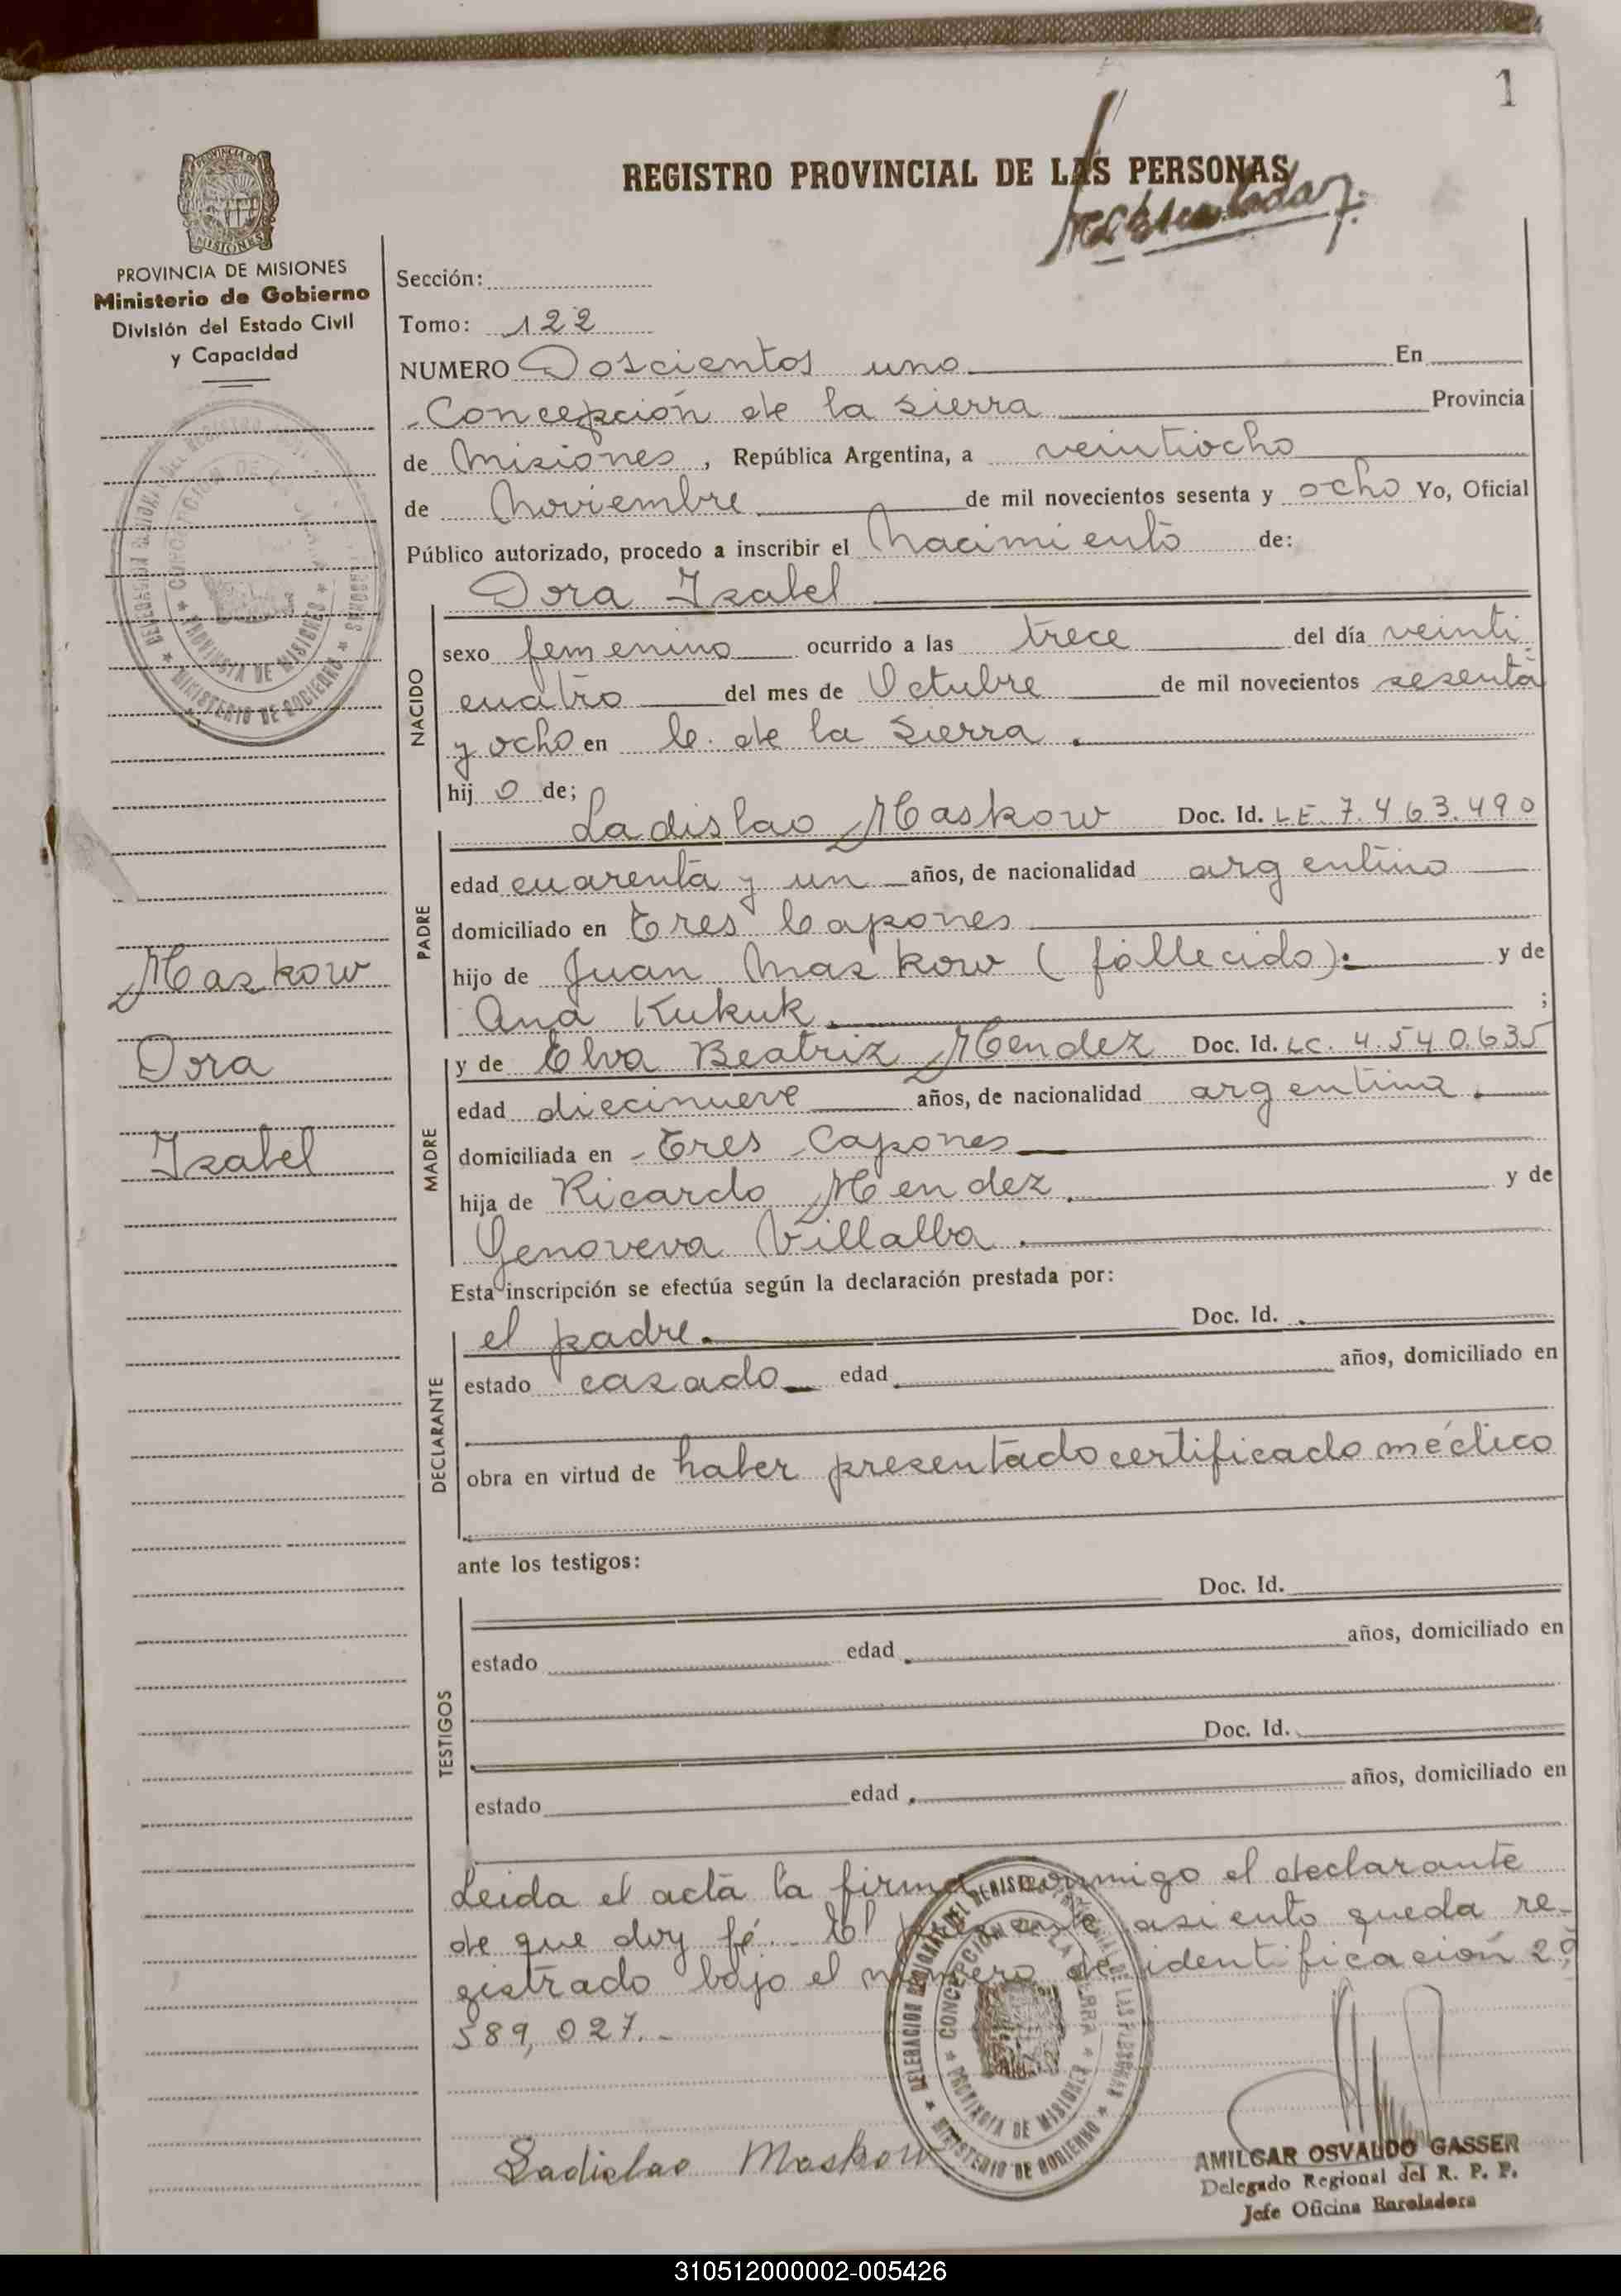 1
REGISTRO PROVINCIAL DE LAS PERSONAS
PROVINCIA DE
MISIONES
PROVINCIA DE MISIONES
Ministerio de Gobierno
División del Estado Civil
y Capacidad
Sección:
Tomo: 122
NUMERO Doscientos uno En
Concepción de la Sierra Provincia
de Misiones, República Argentina, a veintiocho
de Noviembre de mil novecientos sesenta y ocho Yo, Oficial
Público autorizado, procedo a inscribir el Nacimiento de:
Dora Isabel
NACIDO
sexo femenino ocurrido a las trece del día veinti
cuatro del mes de Octubre de mil novecientos sesenta
y ocho en C. de la Sierra.
hij o de;
PADRE
Ladislao Maskow Doc. Id. LE. 7.463.490
edad cuarenta y un años, de nacionalidad argentino
domiciliado en Tres Capones
hijo de Juan Maskow (fallecido). y de
Ana Kukuk. ;
MADRE
y de Elva Beatriz Mendez Doc. Id. LC. 4.540.635
edad diecinueve años, de nacionalidad argentina.
domiciliada en Tres Capones
hija de Ricardo Mendez. y de
Genoveva Villalba.
Maskow
Dora
Isabel
Esta inscripción se efectúa según la declaración prestada por:
DECLARANTE
el padre. Doc. Id.
estado casado edad años, domiciliado en
obra en virtud de haber presentado certificado médico
ante los testigos:
TESTIGOS
Doc. Id.
estado edad años, domiciliado en
Doc. Id.
estado edad años, domiciliado en
Leida el acta la firma conmigo el declarante
de que doy fé. El presente asiento queda re-
gistrado bajo el número de identificación 20
589,027.-
DELEGACION REGIONAL DEL REGISTRO PROVINCIAL DE LAS PERSONAS
CONCEPCION DE LA SIERRA
PROVINCIA DE MISIONES
MINISTERIO DE GOBIERNO
Ladislao Maskow
AMILCAR OSVALDO GASSER
Delegado Regional del R. P. P.
Jefe Oficina Enroladora
310512000002-005426